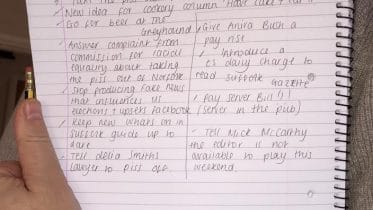 New idea for cookery column 'Have cake & eat it'
Go for beer at the
Greyhound
Answer complaint from
commission for racial
equality about taking
the piss out of Norfolk
Stop producing Fake News
that influences US
elections & upsets Facebook
Keep new whats on in
Suffolk guide up to
date
Tell Delia Smiths
lawyer to piss off.
Give Anira Bush a
pay rise
Introduce a
£5 daily charge to
read Suffolk Gazette
Pay server Bill!
(server in the pub)
Tell Mick McCarthy
the editor is not
available to play this
weekend.